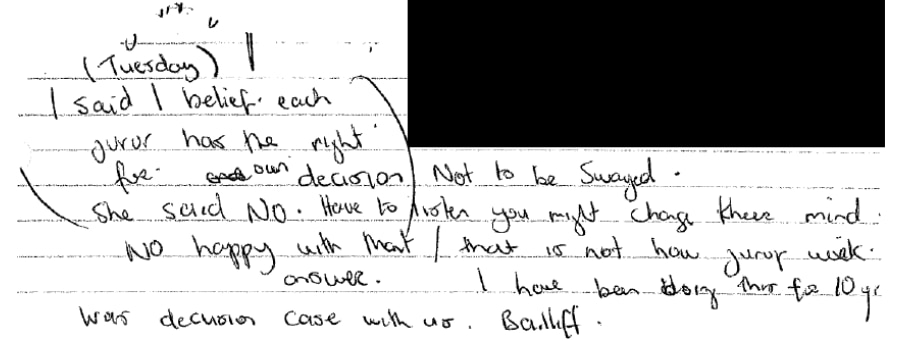 (Tuesday)
I said I belief. each
juror has the right
for own decision Not to be Swayed.
She said NO. Have to listen you might change there mind.
NO happy with that / that is not how juror work.
answer. I have been doing this for 10 yr
was decision case with us. Bailiff.